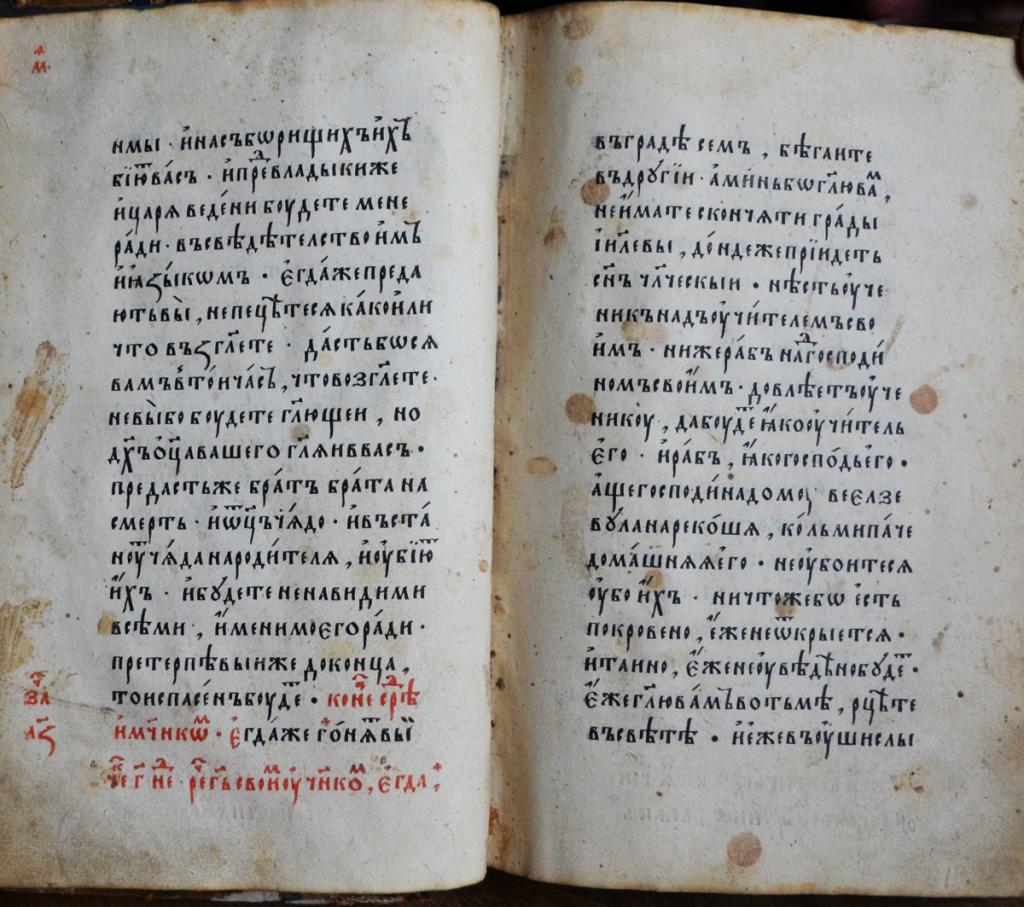 м҃
нмы · и҆насъбѡрищихъи҆хъ
бїю҆тва́съ · и҆пре́двладыкиже
и҆царя веде́ни боудете мене
ра́ди · въсвѣдѣ́телство и҆мъ
и҆ꙗ҆зы́комъ · є҆гда́жепреда
ютьвы̀ , непецѣ́тесяка́кои҆ли
что въꙁгл҃ете · да́стьбѡся
вамъвто́йча́съ , чтовозгл҃ете ·
невы́бо боудете гл҃ющеи , но
дх҃ъо҆ц҃авашего гл҃яиввасъ ·
предастьже братъ брата на
смерть · и҆ѡ҆ц҃ъча́до · и҆въста́
ноу҆тча́данароди́теля , и҆оубїю҆т
и҆́хъ · и҆будете ненавидими
всѣ́ми , и҆́менимоєгора́ди ·
претерпѣвыиже доконца ,
тоиспасе́нъбоуде · коне́ сре́дѣ
ꙁ҃ а
и҆мч҃нкѡм · є҆гда́же го́нѧтвы̀
лꙁ҃
че г҃ не · рече г҃ь свои́м оу҆ч҃нко́м , є҆гда ,
въгра́дѣ семъ , бѣгаите
въдругїи · а҆ми́ньбѡгл҃юва́м ,
неи҆́мате сконча́ти гра́ды
і҆и҃левы , до́ндежепрїи́деть
сн҃ъ чл҃ческыи · нѣ́стьоу҆че
никънадъоу҆чи́телемъсво
и҆́мъ · нижера́бъ надгосподи́
номъсвои́мъ · довлѣ́етъоу҆че
никоу , дабоу́де ꙗ҆́коо҆учи́тель
є҆го̀ · и҆ра́бъ , ꙗ҆́когоспо́дье҆го ·
а҆щегосподи́надомоу веелзе
ву́ланареко́шя , ко́льмипа́че
дома́шняяє҆го · неоу҆боитеся
оу҆бо и҆́хъ · ничто́жебѡ є҆́сть
покровено , є҆́женеѿкрыется ·
и҆таино , є҆́женеоу҆вѣ́дѣнобуде́т ·
є҆́жегл҃ювамъвотьмѣ , рцѣ́те
въсвѣтѣ · и҆е҆жевъоу҆́шислы